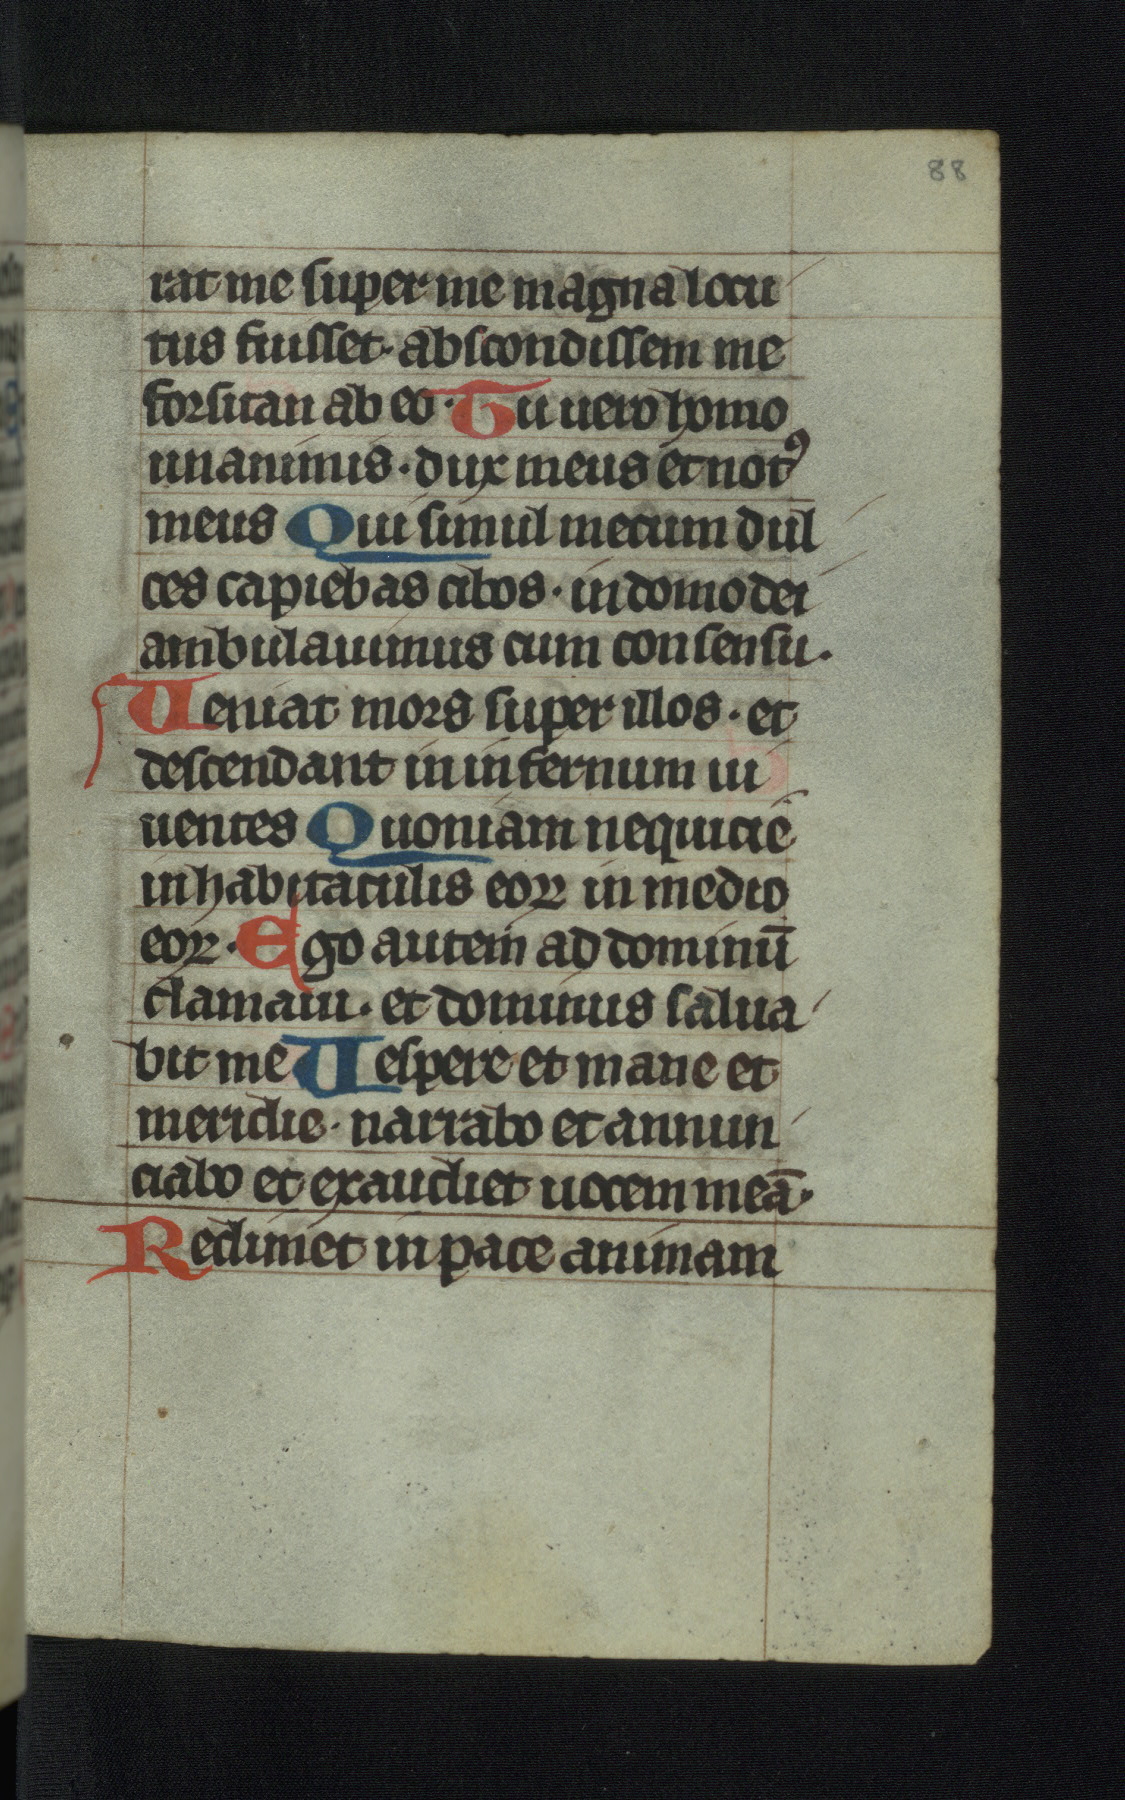 88
rat me super me magna locu
tus fuisset· abscondissem me
forsitan ab eo· Tu uero homo
unanimis· dux meus et notꝰ
meus Qui simul mecum dul
ces capiebas cibos· in domo dei
ambulauimus cum consensu·
Ueniat mors super illos· et
descendant in infernum ui
uentes Quoniam nequicie
in habitaculis eoꝝ in medio
eoꝝ· Ego autem ad dominū
clamaui· et dominus salua
bit me Uespere et mane et
meridie· narrabo et annun
ciabo et exaudiet uocem meā·
Redimet in pace animam